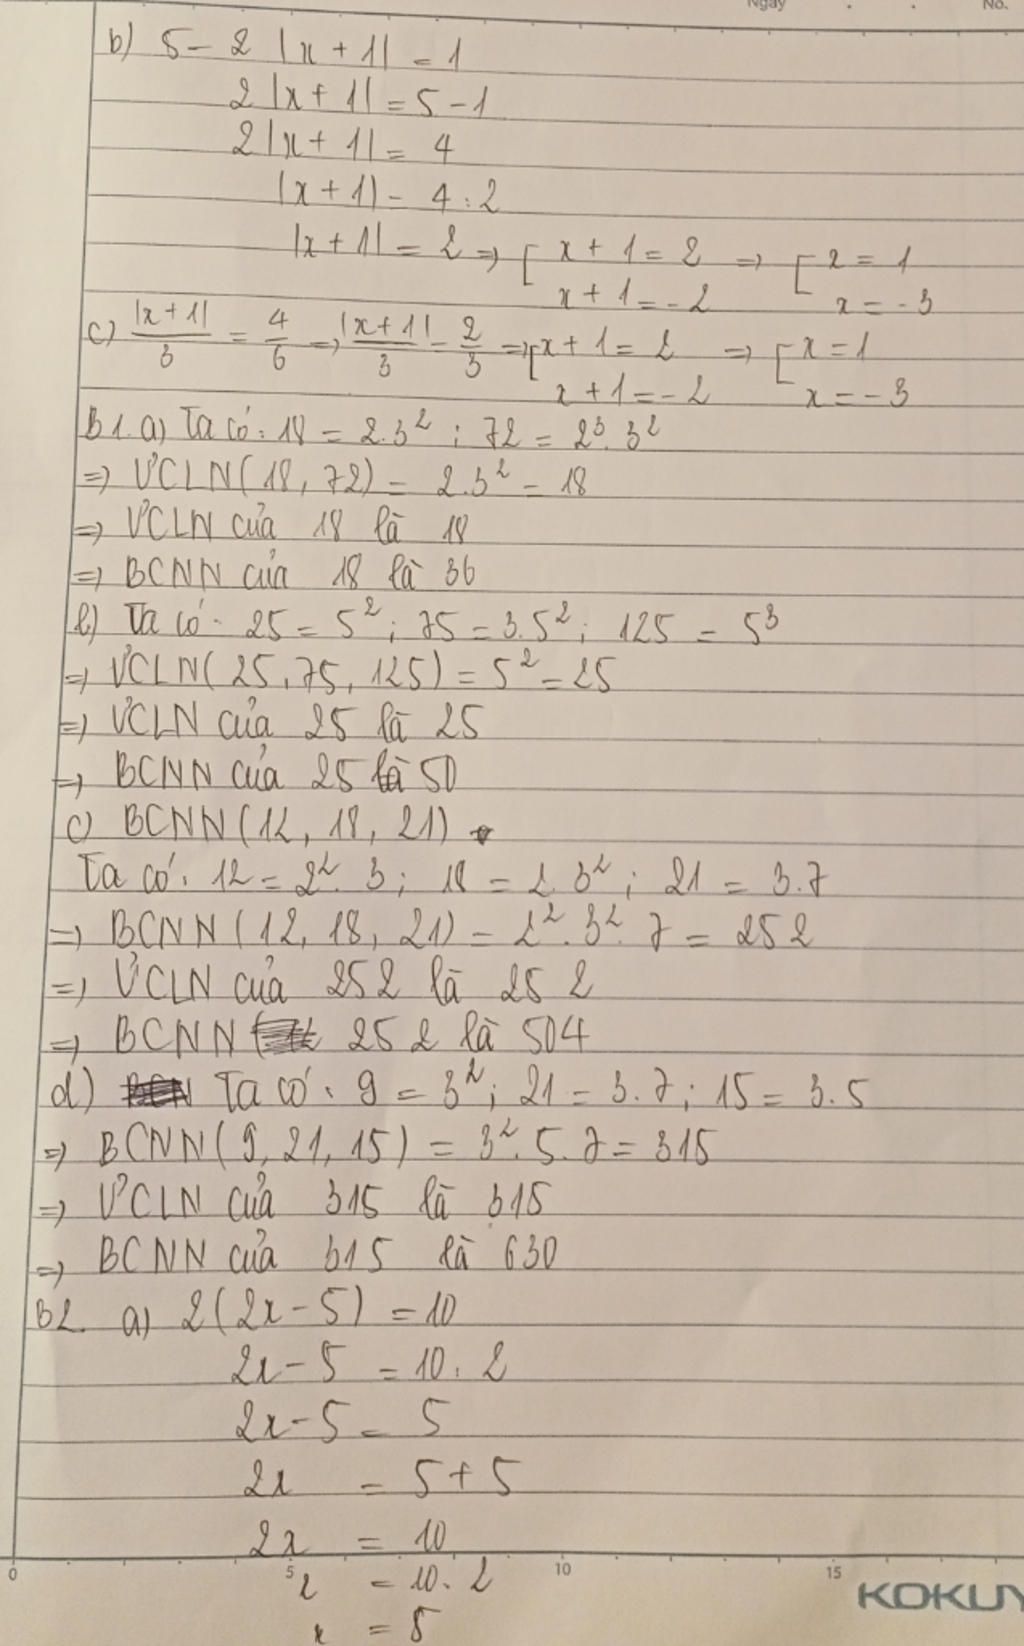 Ngày . . No.
b) 5 - 2 |x + 1| = 1
2 |x + 1| = 5 - 1
2 |x + 1| = 4
|x + 1| = 4 : 2
|x + 1| = 2 => [ x + 1 = 2 => [ x = 1
x + 1 = -2 x = -3
c) |x + 1|/3 = 4/6 => |x + 1|/3 = 2/3 => [ x + 1 = 2 => [ x = 1
x + 1 = -2 x = -3
B1. a) Ta có: 18 = 2.3² ; 72 = 2³.3²
=> ƯCLN(18, 72) = 2.3² = 18
=> ƯCLN của 18 là 18
=> BCNN của 18 là 36
b) Ta có: 25 = 5² ; 75 = 3.5² ; 125 = 5³
=> ƯCLN(25, 75, 125) = 5² = 25
=> ƯCLN của 25 là 25
=> BCNN của 25 là 50
c) BCNN(12, 18, 21)
Ta có: 12 = 2².3 ; 18 = 2.3² ; 21 = 3.7
=> BCNN(12, 18, 21) = 2².3².7 = 252
=> ƯCLN của 252 là 252
=> BCNN 252 là 504
d) Ta có: 9 = 3² ; 21 = 3.7 ; 15 = 3.5
=> BCNN(9, 21, 15) = 3².5.7 = 315
=> ƯCLN của 315 là 315
=> BCNN của 315 là 630
B2. a) 2(2x - 5) = 10
2x - 5 = 10 : 2
2x - 5 = 5
2x = 5 + 5
2x = 10
x = 10 : 2
x = 5
0 5 10 15
KOKUY